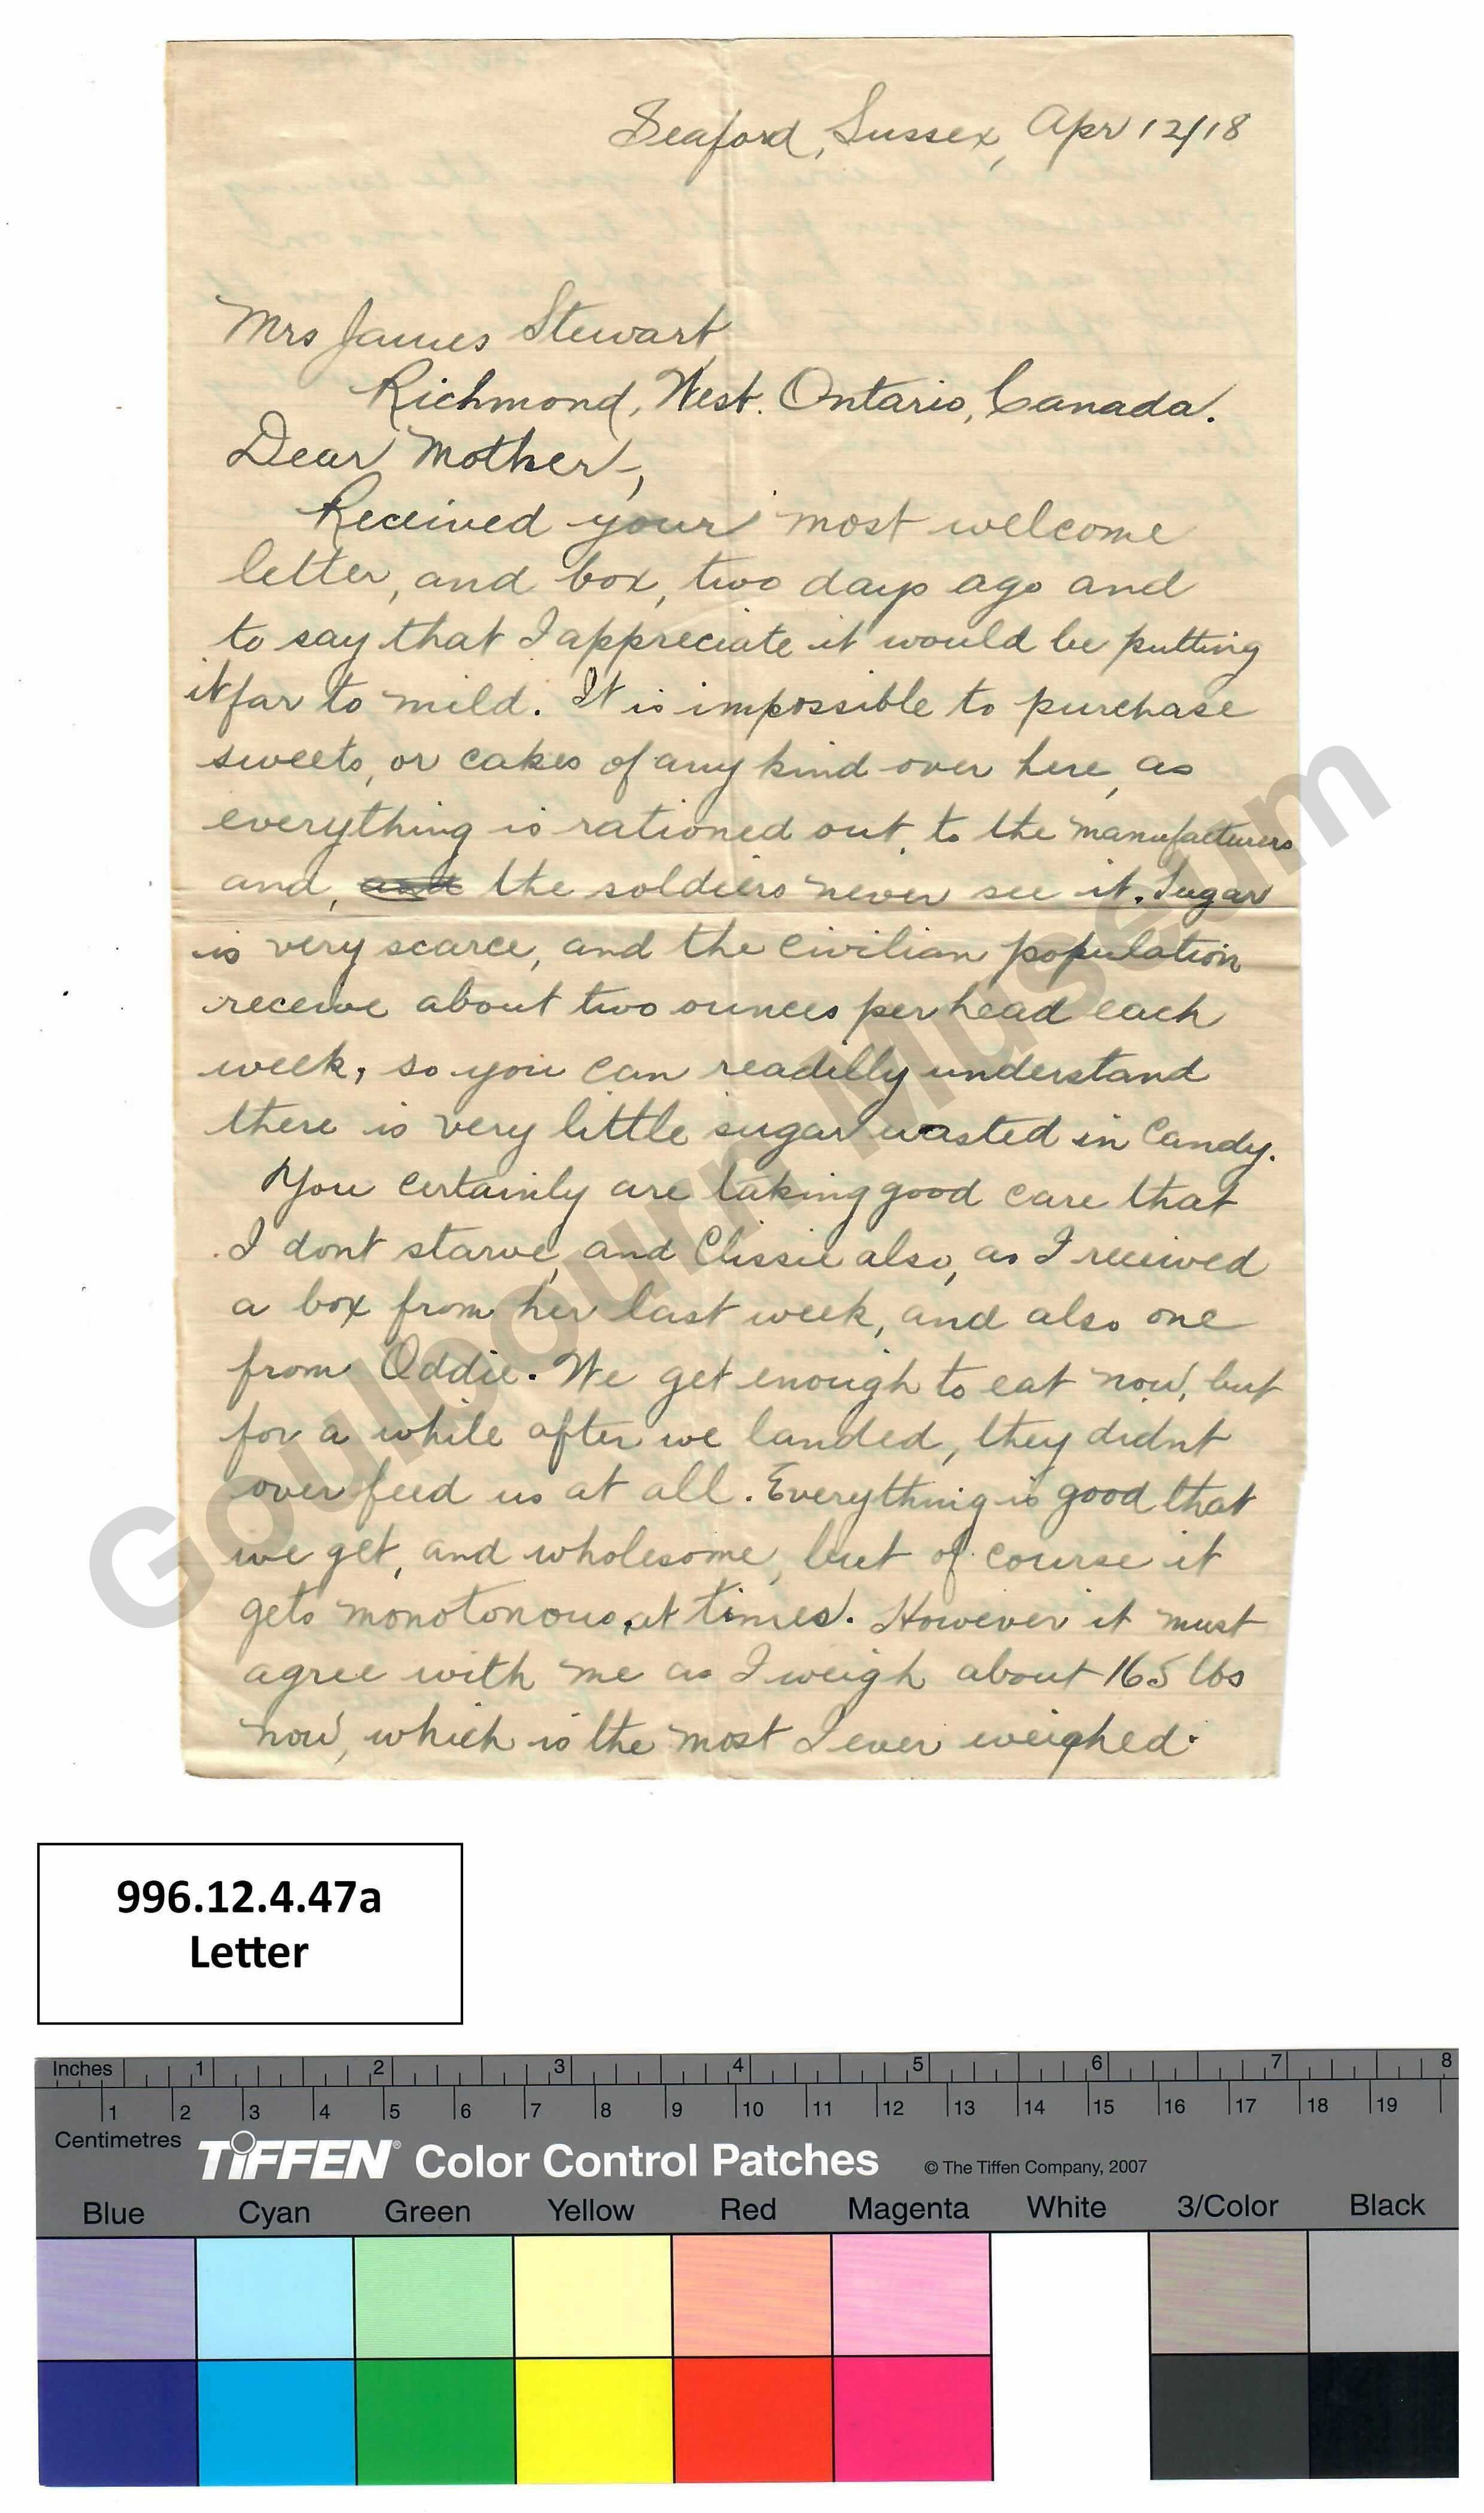 Seaford, Sussex, Apr 12/18
Mrs James Stewart,
Richmond, West. Ontario, Canada.
Dear Mother-,
Received your most welcome
letter, and box, two days ago and
to say that I appreciate it would be putting
it far to mild. It is impossible to purchase
sweets, or cakes of any kind over here, as
everything is rationed out, to the manufacturers
and, and the soldiers never see it. Sugar
is very scarce, and the civilian population
receive about two ounces per head each
week, so you can readilly understand
there is very little sugar wasted in Candy.
You certainly are taking good care that
I dont starve, and Clissie also, as I received
a box from her last week, and also one
from Oddie. We get enough to eat now, but
for a while after we landed, they didnt
over feed us at all. Everything is good that
we get, and wholesome, but of course it
gets monotonous, at times. However it must
agree with me as I weigh about 165 lbs
now, which is the most I ever weighed.
Goulbourn Museum
996.12.4.47a
Letter
Inches 1 2 3 4 5 6 7 8
1 2 3 4 5 6 7 8 9 10 11 12 13 14 15 16 17 18 19
Centimetres
TIFFEN® Color Control Patches © The Tiffen Company, 2007
Blue Cyan Green Yellow Red Magenta White 3/Color Black